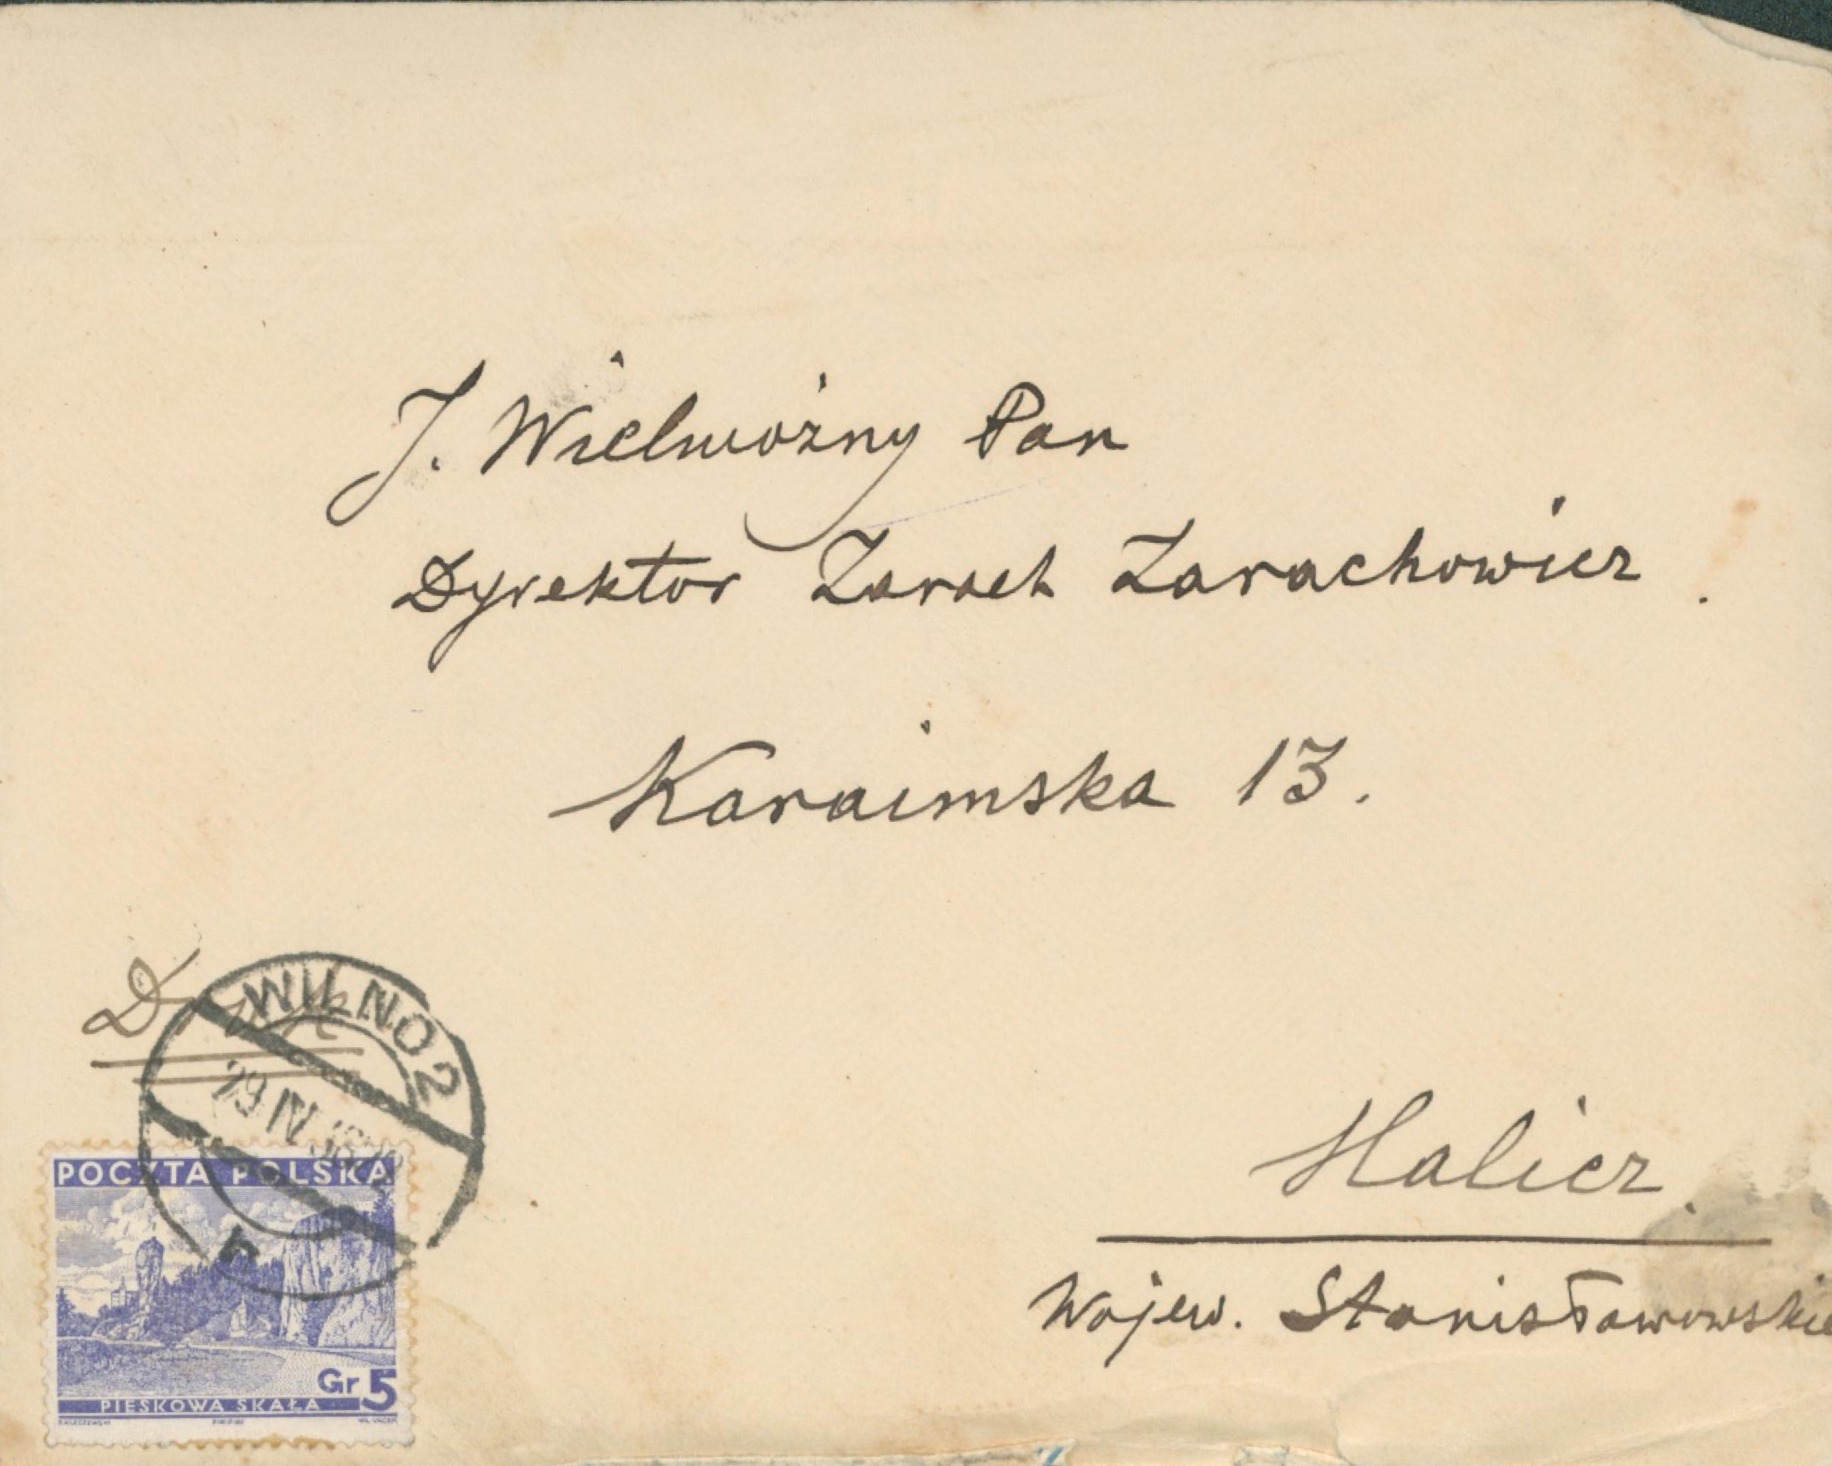 J. Wielmożny Pan
Dyrektor Zarach Zarachowicz.
Karaimska 13.
Druk
WILNO 2
29 IV 38
h
POCZTA POLSKA
Gr 5
PIESKOWA SKAŁA
Halicz.
Wojew. Stanisławowskie